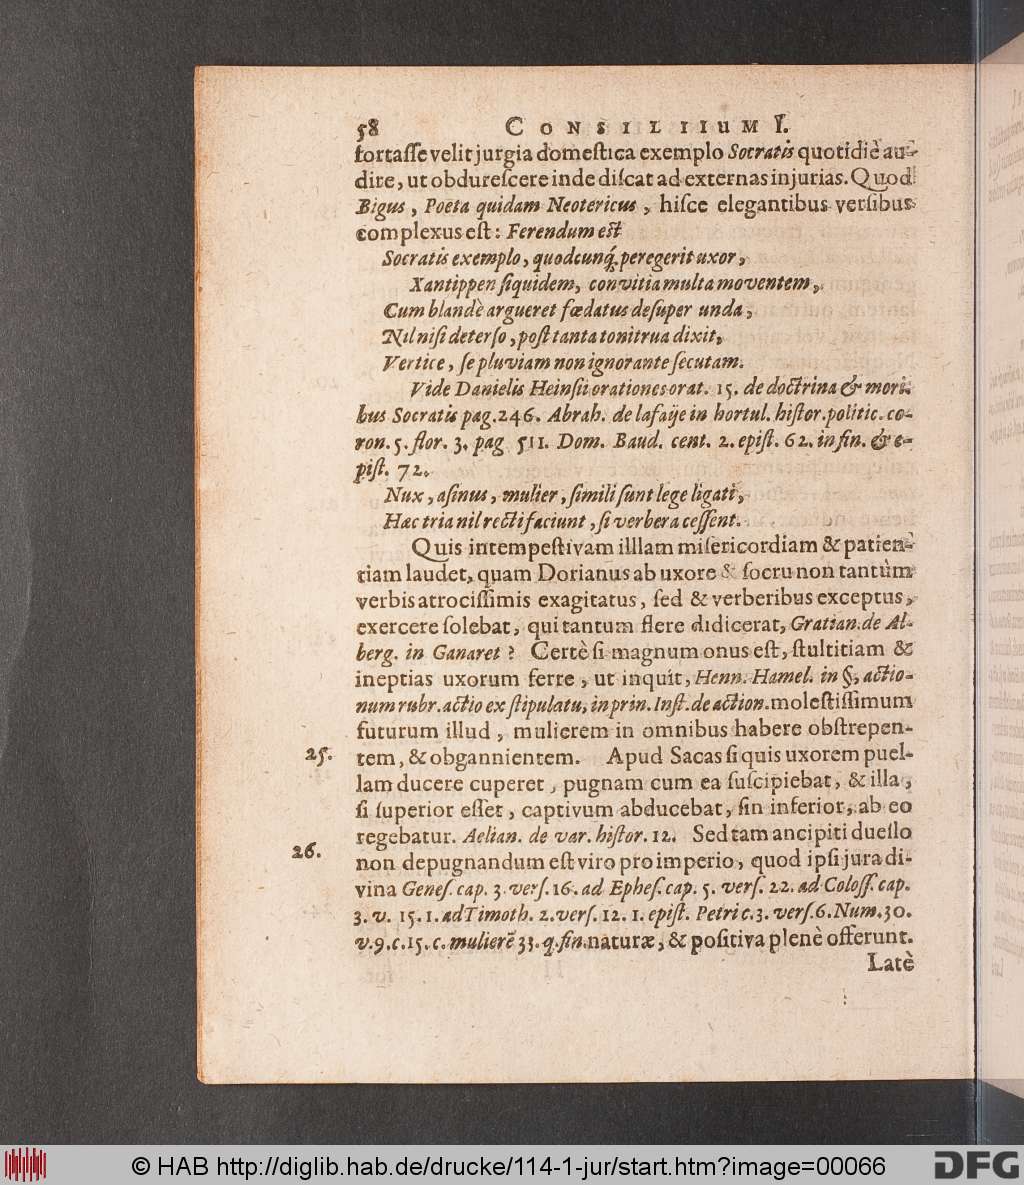 58 CONSILIIuM I.
fortasse velit jurgia domestica exemplo Socratis quotidiè au-
dire, ut obdurescere inde discat ad externas injurias. Quod
Bigus, Poeta quidam Neotericus, hisce elegantibus versibus
complexus est: Ferendum est
Socratis exemplo, quodcunq́; peregerit uxor,
Xantippen siquidem, convitia multa moventem,
Cum blandè argueret fœdatus desuper unda,
Nil nisi deterso, post tanta tonitrua dixit,
Vertice, se pluviam non ignorante secutam.
Vide Danielis Heinsii orationes orat. 15. de doctrina & mori-
bus Socratis pag. 246. Abrah. de lafaije in hortul. histor. politic. co-
ron. 5. flor. 3. pag 511. Dom. Baud. cent. 2. epist. 62. in fin. & e-
pist. 72.
Nux, asinus, mulier, simili sunt lege ligati,
Haec tria nil recti faciunt, si verbera cessent.
Quis intempestivam illlam misericordiam & patien-
tiam laudet, quam Dorianus ab uxore & socru non tantùm
verbis atrocissimis exagitatus, sed & verberibus exceptus,
exercere solebat, qui tantum flere didicerat, Gratian. de Al-
berg. in Ganaret? Certè si magnum onus est, stultitiam &
ineptias uxorum ferre, ut inquit, Henn. Hamel. in §, actio-
num rubr. actio ex stipulatu, in prin. Inst. de action. molestissimum
futurum illud, mulierem in omnibus habere obstrepen-
25. tem, & obgannientem. Apud Sacas si quis uxorem puel-
lam ducere cuperet, pugnam cum ea suscipiebat, & illa,
si superior esset, captivum abducebat, sin inferior, ab eo
regebatur. Aelian. de var. histor. 12. Sed tam ancipiti duello
26. non depugnandum est viro pro imperio, quod ipsi jura di-
vina Genes. cap. 3. vers. 16. ad Ephes. cap. 5. vers. 22. ad Coloss. cap.
3. v. 15. 1. ad Timoth. 2. vers. 12. 1. epist. Petri c. 3. vers. 6. Num. 30.
v. 9. c. 15. c. mulierē 33. q. fin. naturæ, & positiva plenè offerunt.
Latè
© HAB http://diglib.hab.de/drucke/114-1-jur/start.htm?image=00066
DFG